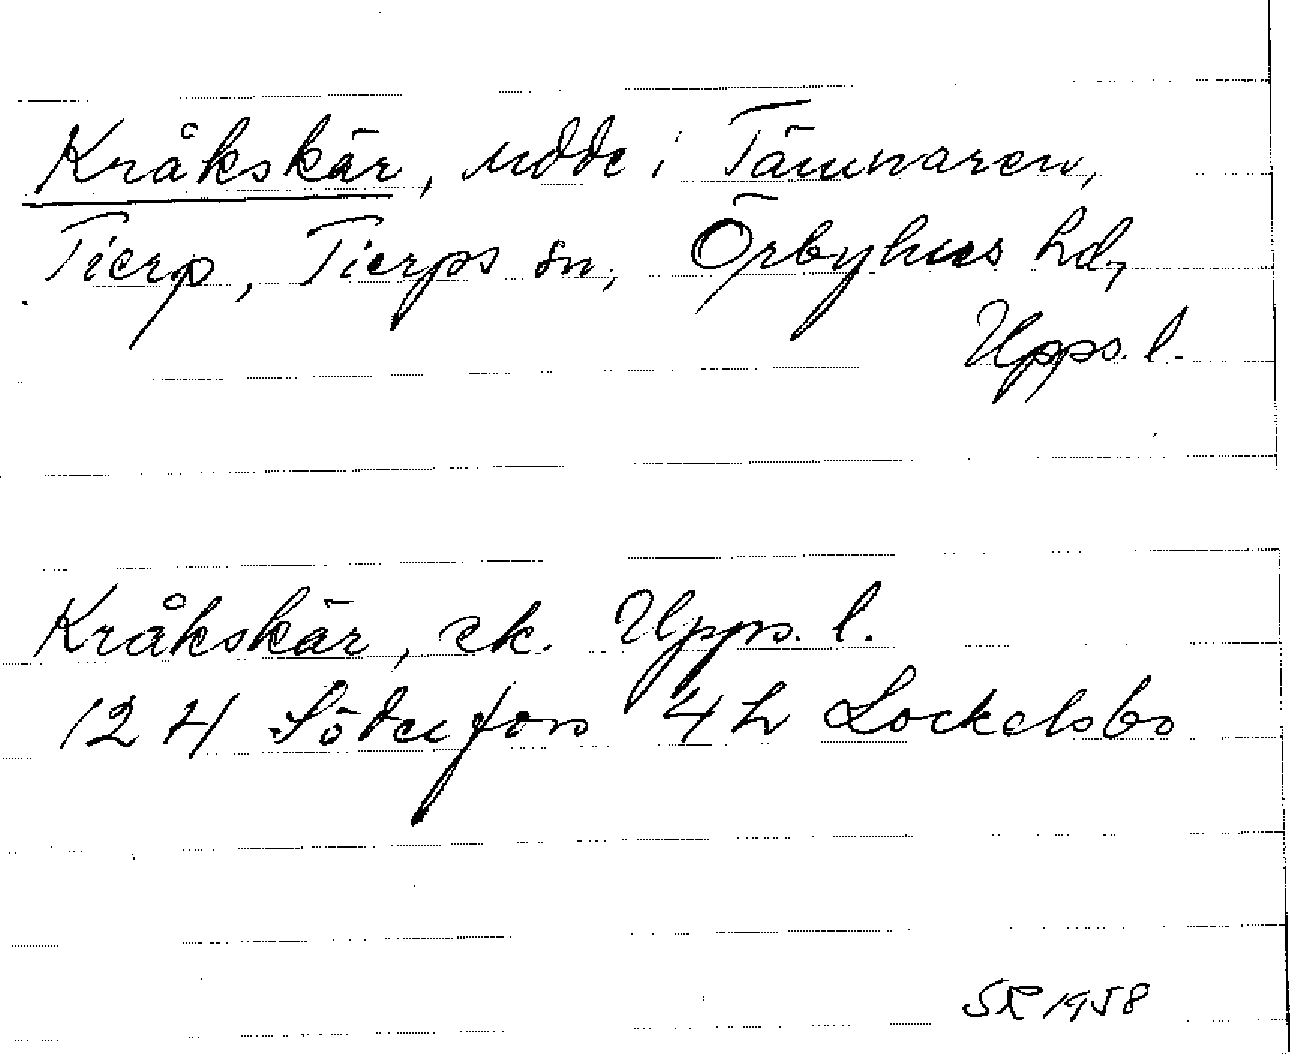 Kråkskär, udde i Tämnaren,
Tierp, Tierps sn, Örbyhus hd,
Upps. l.
Kråkskär, ek. Upps. l.
12 H Söderfors 4 h Lockelsbo
SR 1958